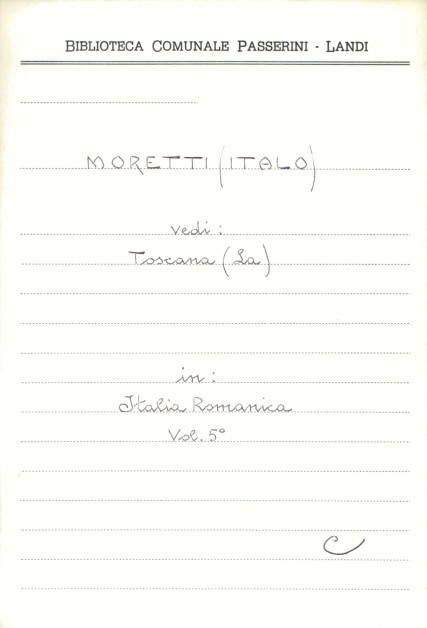 BIBLIOTECA COMUNALE PASSERINI - LANDI
MORETTI (ITALO)
vedi:
Toscana (La)
in:
Italia Romanica
Vol. 5°
C